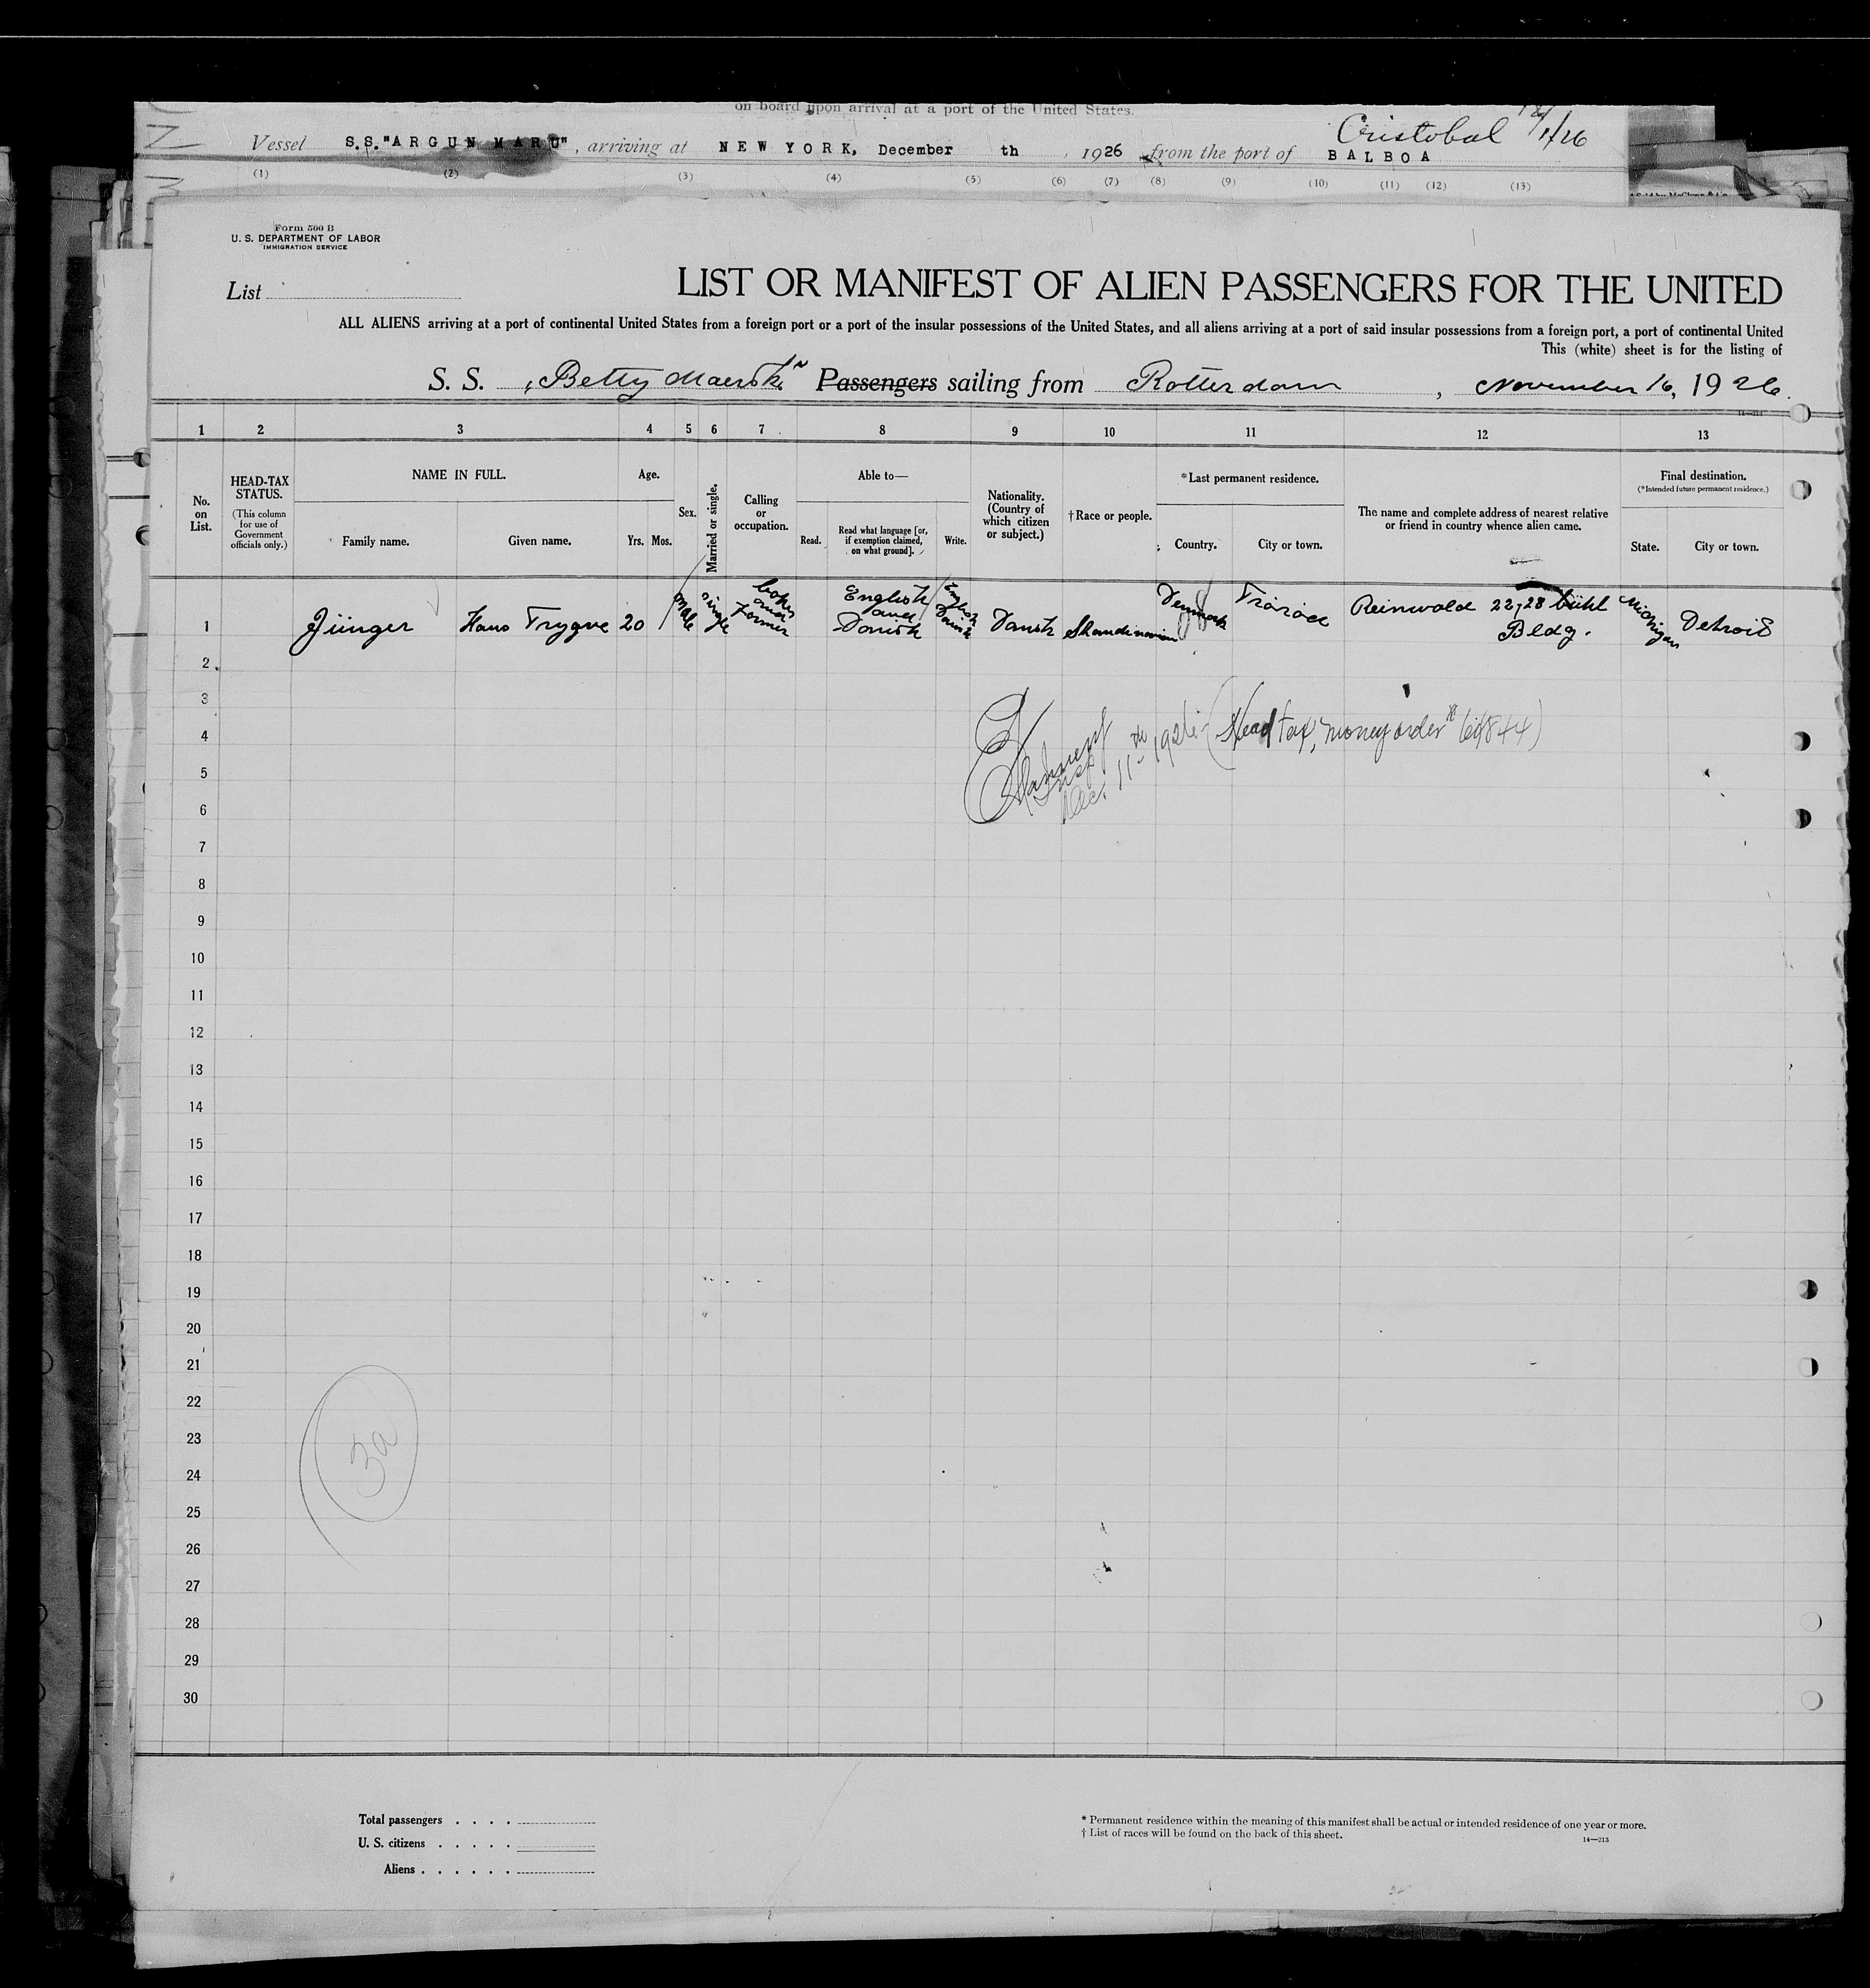 on board upon arrival at a port of the United States.
Cristobal 12/1/26
Vessel S.S. "ARGUN MARU", arriving at NEW YORK, December th, 1926 from the port of BALBOA
(1) (2) (3) (4) (5) (6) (7) (8) (9) (10) (11) (12) (13)
Form 500 B
U. S. DEPARTMENT OF LABOR
IMMIGRATION SERVICE
List
LIST OR MANIFEST OF ALIEN PASSENGERS FOR THE UNITED
ALL ALIENS arriving at a port of continental United States from a foreign port or a port of the insular possessions of the United States, and all aliens arriving at a port of said insular possessions from a foreign port, a port of continental United
This (white) sheet is for the listing of
S. S. "Betty Maersk" Passengers sailing from Rotterdam, November 16, 1926.
14—213
1 2 3 4 5 6 7 8 9 10 11 12 13
No. on List.
HEAD-TAX STATUS.
(This column for use of Government officials only.)
NAME IN FULL.
Family name. Given name.
Age.
Yrs. Mos.
Sex.
Married or single.
Calling or occupation.
Able to—
Read. Read what language [or, if exemption claimed, on what ground]. Write.
Nationality. (Country of which citizen or subject.)
†Race or people.
*Last permanent residence.
Country. City or town.
The name and complete address of nearest relative or friend in country whence alien came.
Final destination.
(*Intended future permanent residence.)
State. City or town.
1 Jünger Hans Trygve 20 male single and Farmer English and Danish English Danish Danish Skandinavian Denmark Trörød Reinwald 22,28 bühl Bldg. Michigan Detroit
2
3
4
5
6
Insp
Dec. 11th 1926 (Head tax, money order # 61844)
7
8
9
10
11
12
13
14
15
16
17
18
19
20
21
22
23
24
25
26
27
28
29
30
3a
Total passengers . . . .
U. S. citizens . . . . .
Aliens . . . . . .
* Permanent residence within the meaning of this manifest shall be actual or intended residence of one year or more.
† List of races will be found on the back of this sheet.
14—213